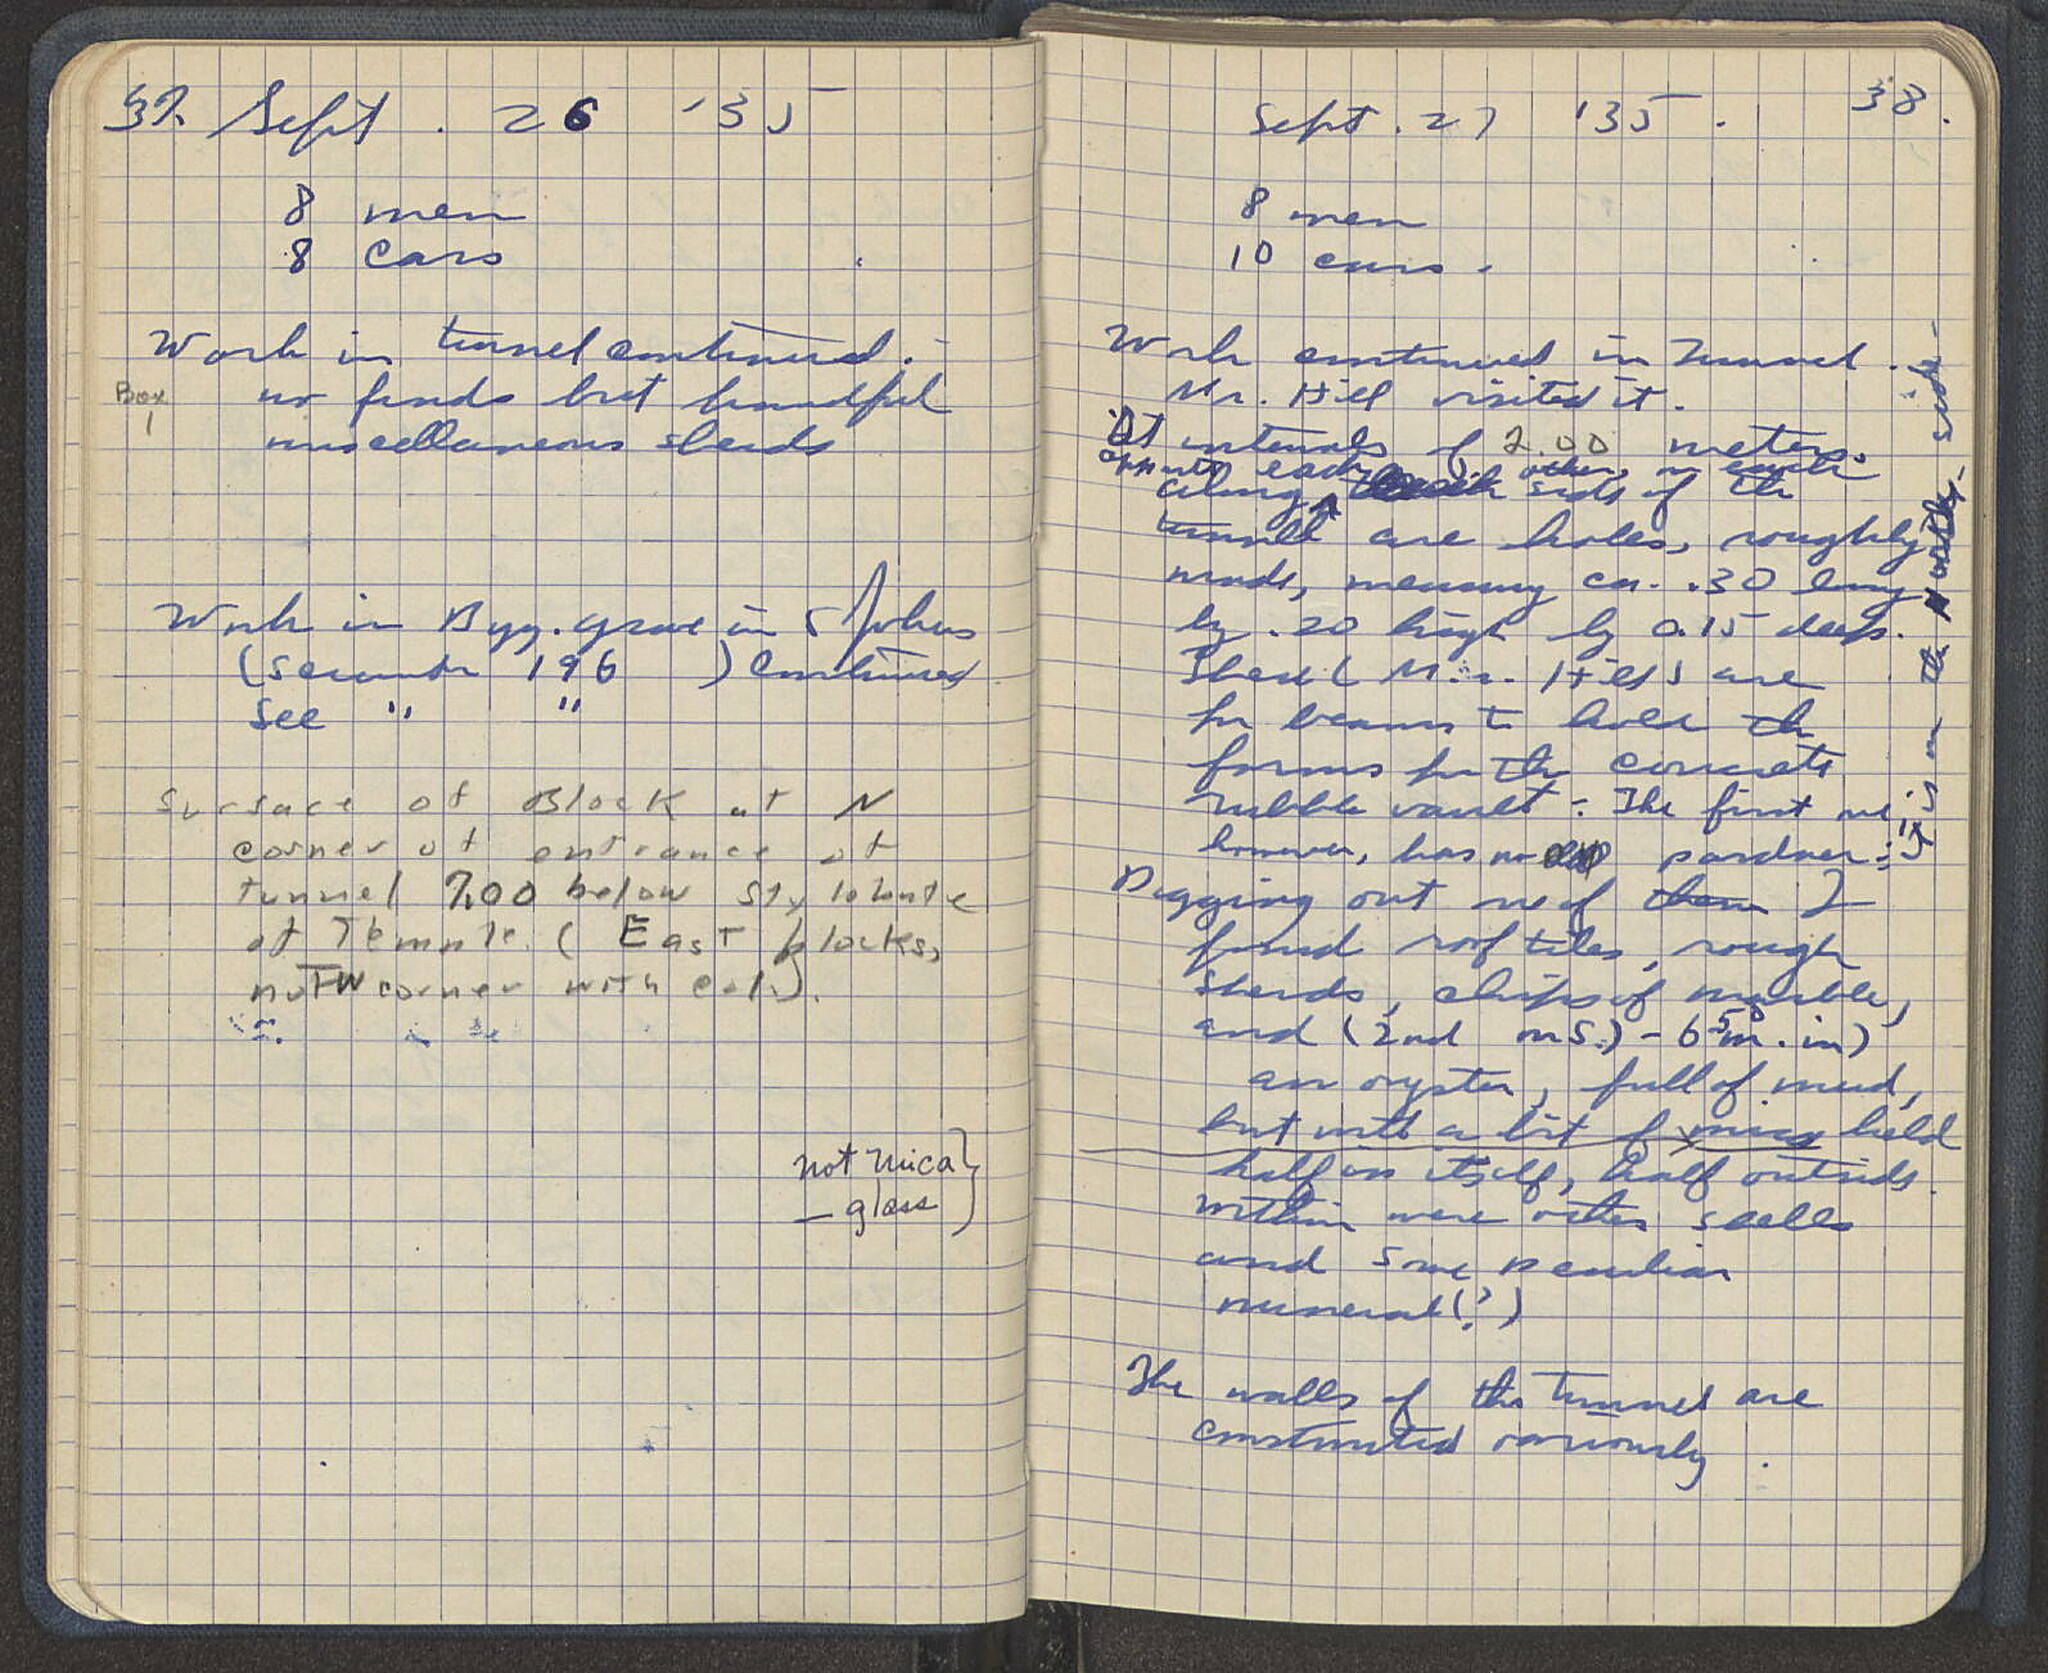 37. Sept. 26 '35
8 men
8 cars
Work in tunnel continued.
Box
1
no finds but handful
miscellaneous sherds
Work in Byz. grave in St Johns
( 196 ) continued
See " "
Surface of Block at N
corner of entrance of
tunnel 7.00 below Stylobate
of Temple. (East blocks,
not W corner with col.).
not mica
— glass
Sept. 27 '35.
38.
8 men
10 cars.
Work continued in Tunnel.
Mr. Hill visited it.
At intervals of 2.00 meters.
opposite each other, on each
along side of the
tunnel are holes, roughly
made, measuring ca. .30 long
by .20 high by 0.15 deep.
These (Mr. Hill) are
for beams to hold the
forms for the concrete
rubble vault. The first one
however, has no pardner:
It is on the North side-
Digging out one of them I
found roof tiles, rough
sherds, chips of marble,
and (2nd on S.) - 6.50 m. in)
an oyster, full of mud,
but with a bit of mica held
half in itself, half outside.
Within were other shells
and some peculiar
mineral(?)
The walls of the tunnel are
constructed variously.